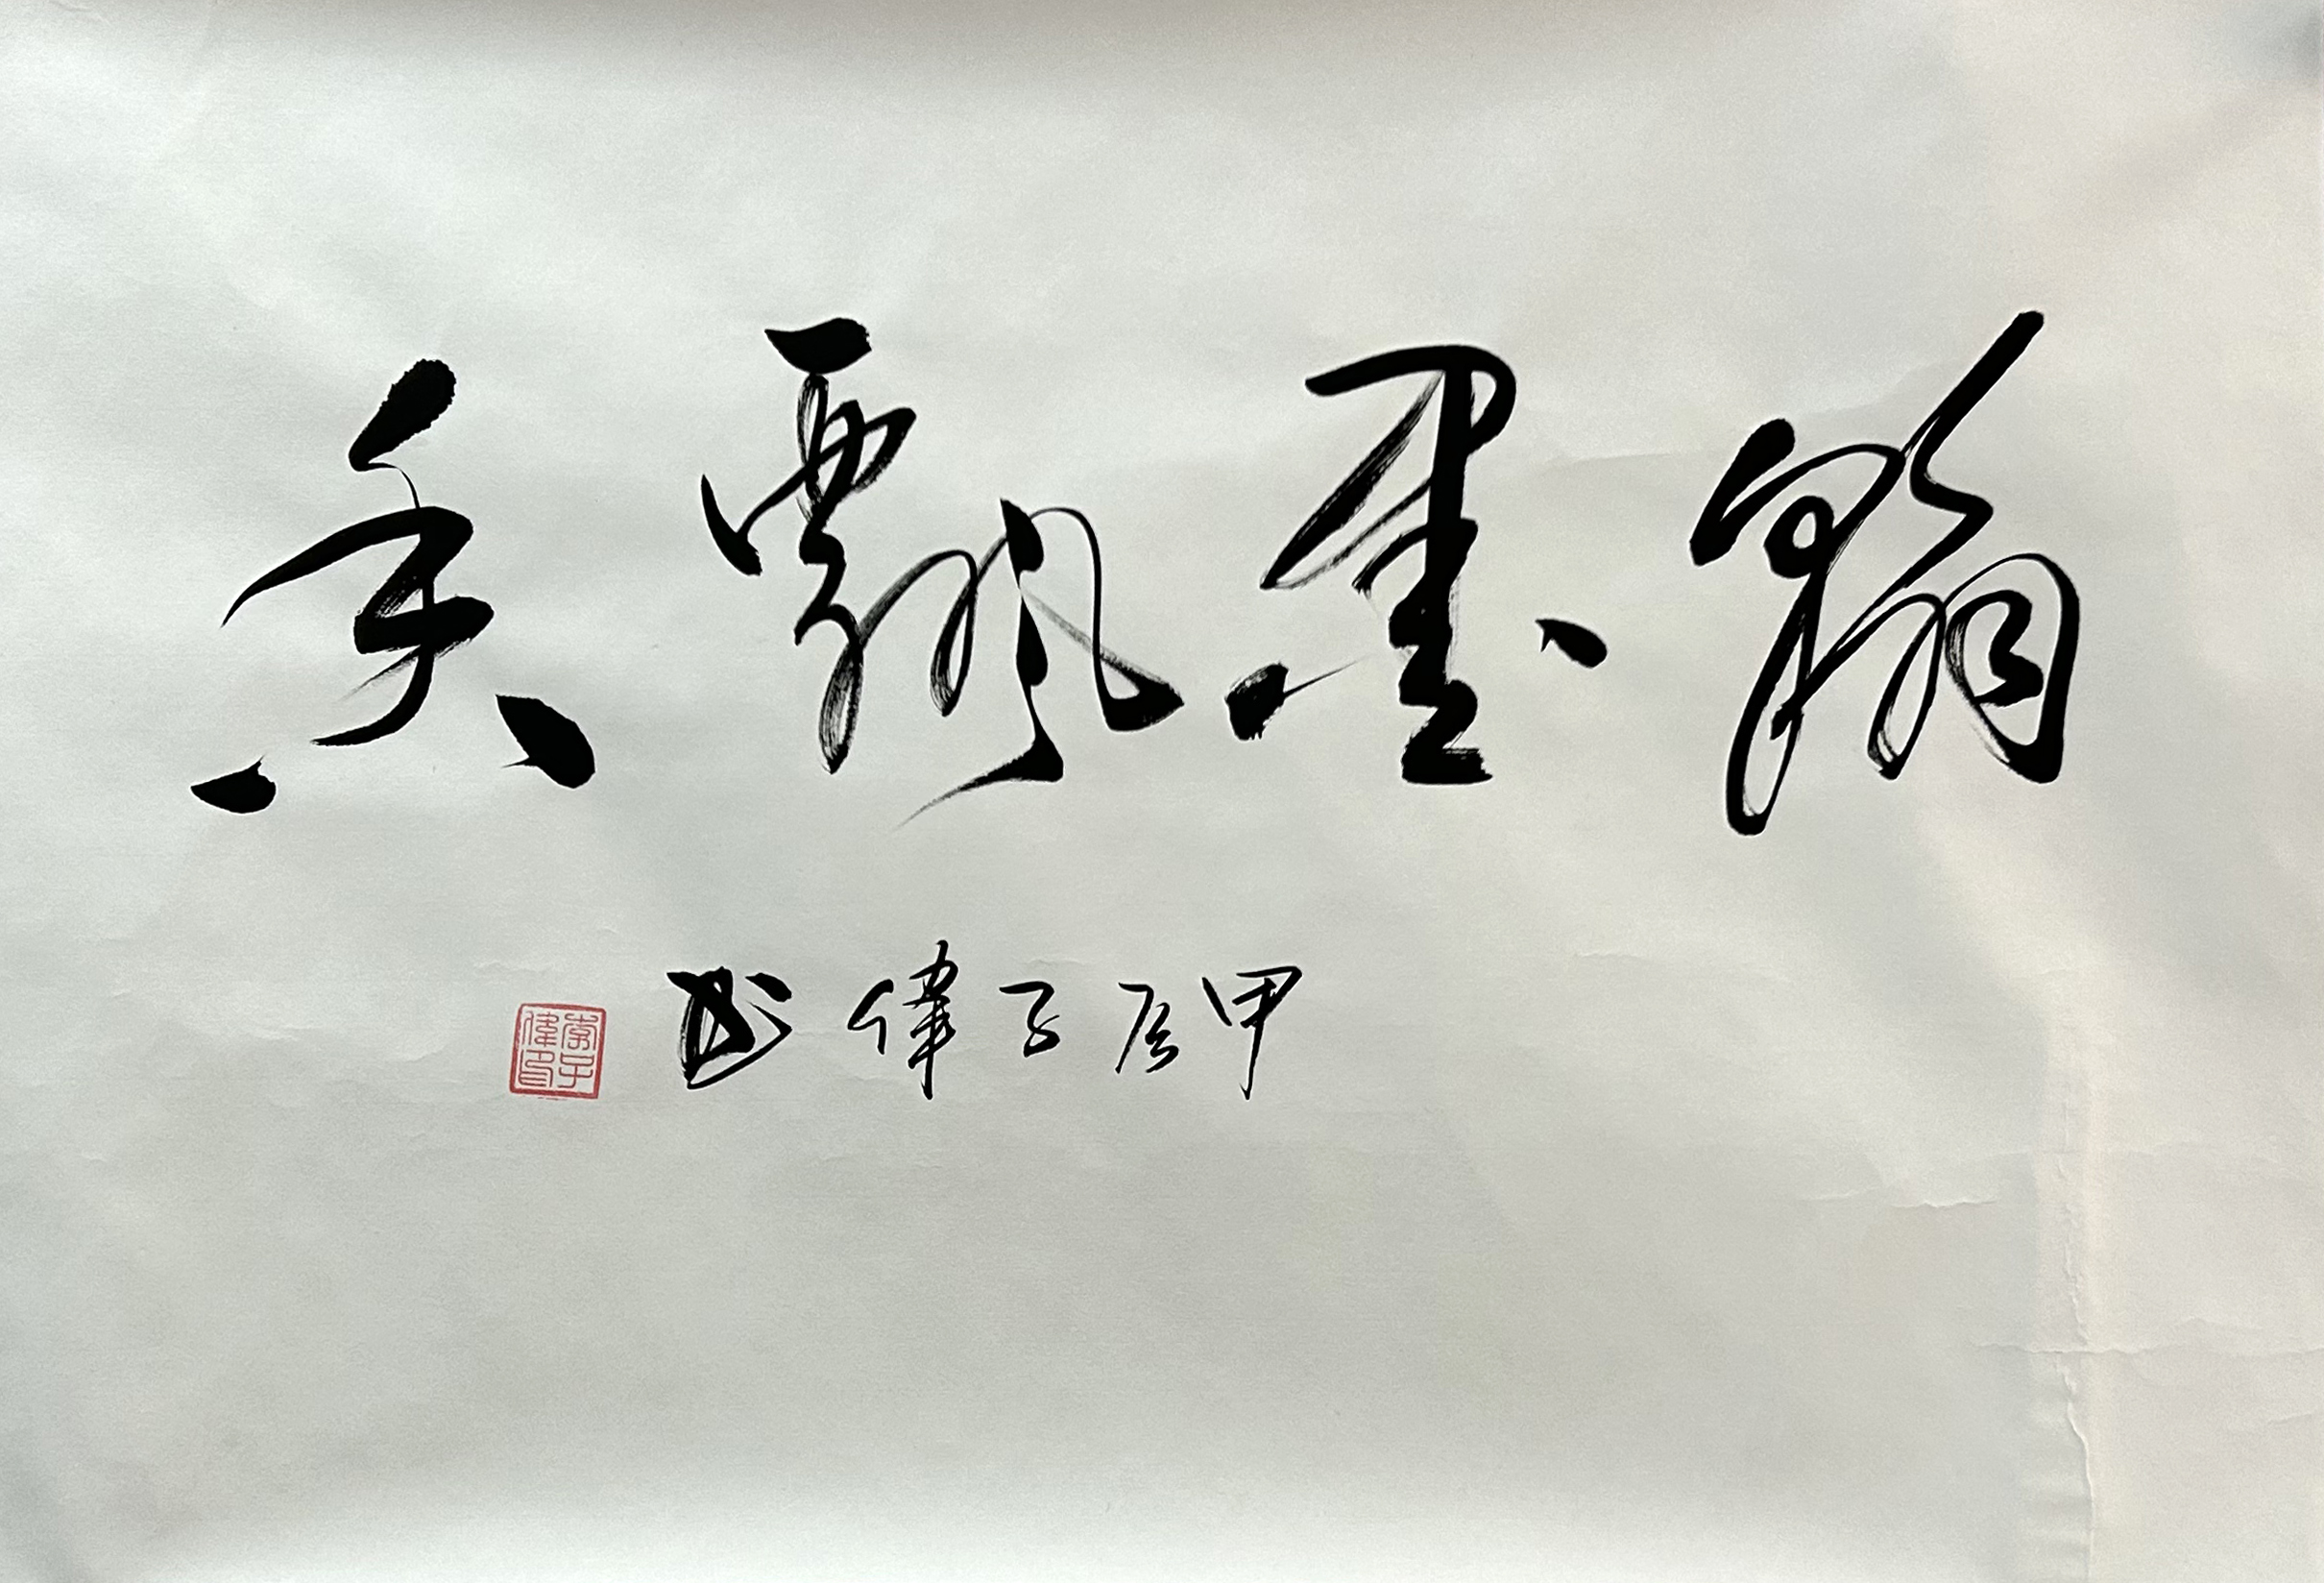 翰墨飘香
甲辰子偉书
李子偉印